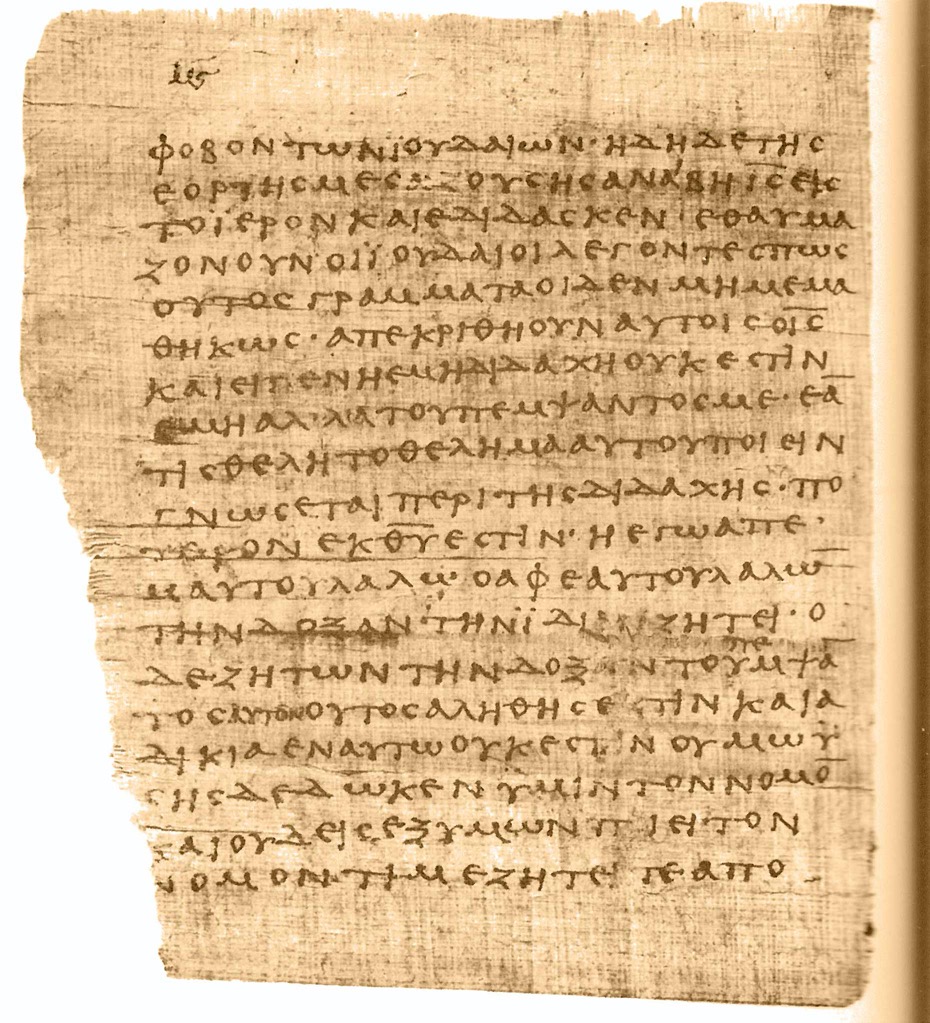 μϛ
ϕοβον των ϊουδαιων· ηδη δε της
εορτης μεσαζουσης ανεβη ι̅ς̅ εις
το ϊερον και εδιδασκεν εθαυμα
ζον ουν οι ϊουδαιοι λεγοντες πως
ουτος γραμματα οιδεν μη μεμα
θηκως· απεκριθη ουν αυτοις ο ι̅ς̅
και ειπεν η εμη διδαχη ουκ εστιν
εμη αλλα του πεμψαντος με· εα̅
τις θελη το θελημα αυτου ποιειν
γνωσεται περι της διδαχης· πο
τερον εκ θ̅υ̅ εστιν· η εγω απ ε
μαυτου λαλω· ο αϕ εαυτου λαλω̅
την δοξαν την ϊδιαν ζητει· ο
δε ζητων την δοξαν του πεμψα̅
τος αυτον ουτος αληθης εστιν και α
δικια εν αυτω ουκ εστιν ου μωϋ
σης δεδωκεν ϋμιν τον νομο̅
και ουδεις εξ υμων ποιει τον
νομον· τι με ζητειτε απο